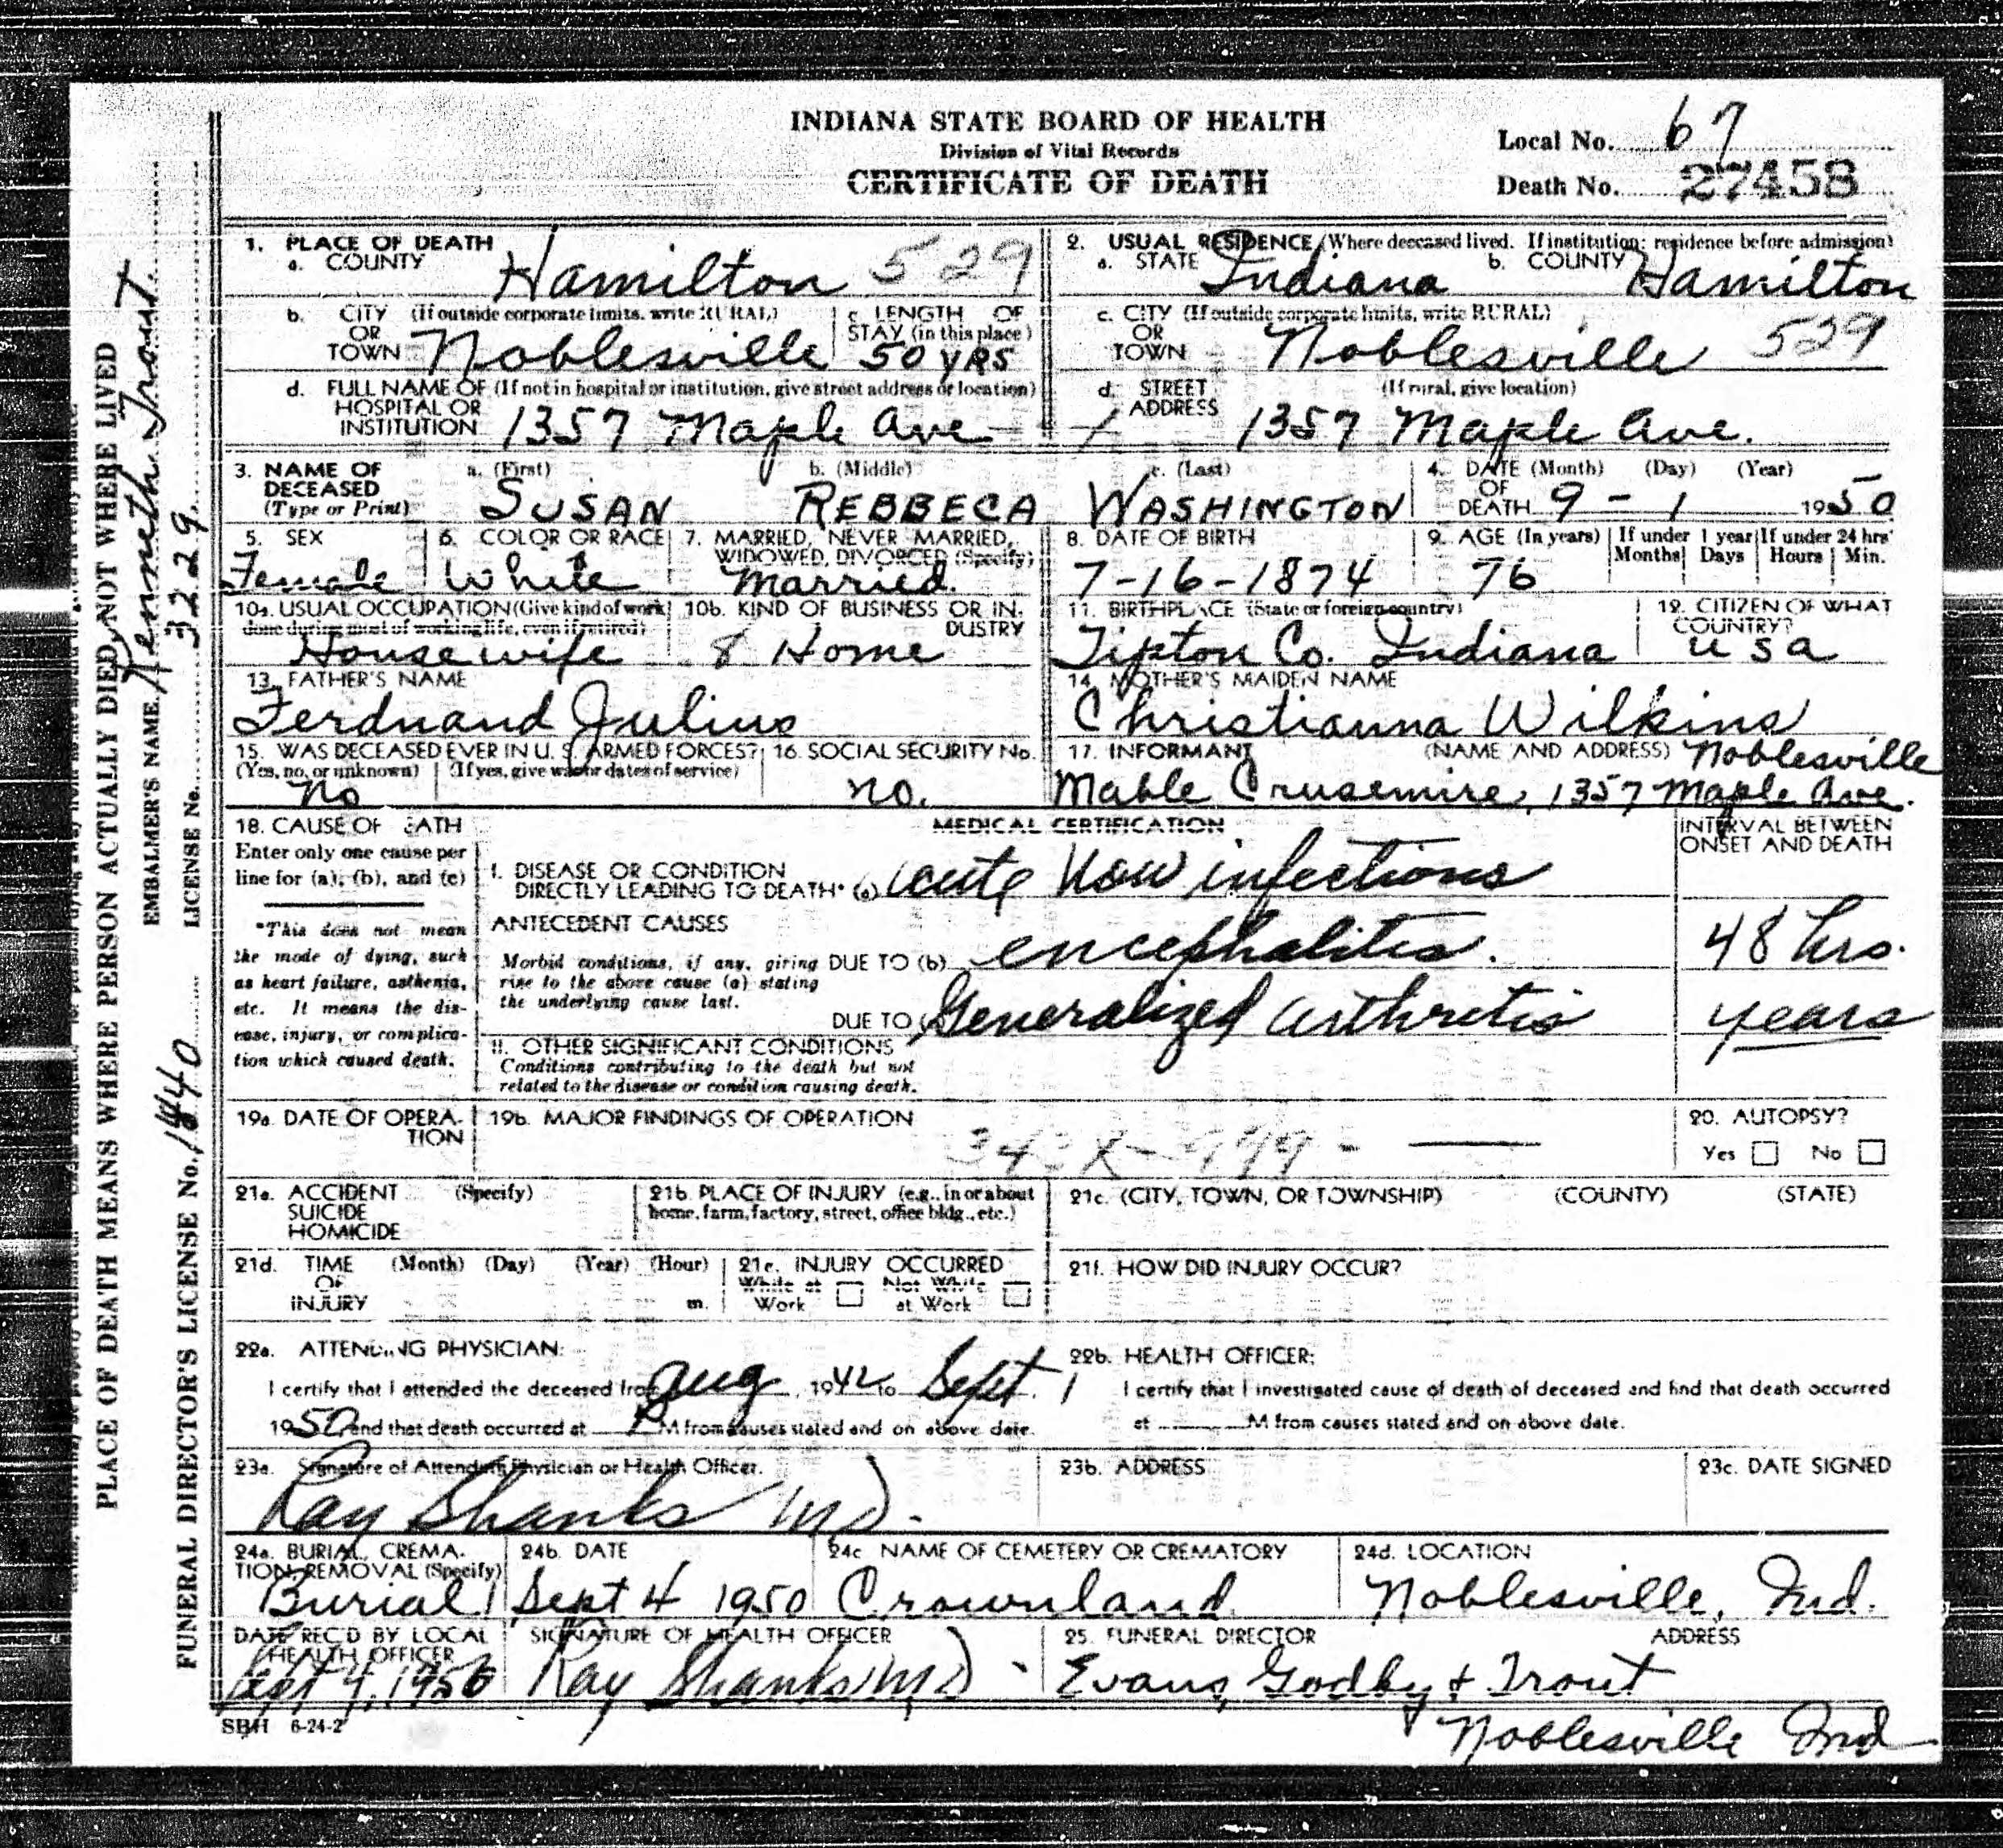 INDIANA STATE BOARD OF HEALTH
Division of Vital Records
CERTIFICATE OF DEATH
Local No. 67
Death No. 27458
1. PLACE OF DEATH
a. COUNTY Hamilton 529
2. USUAL RESIDENCE (Where deceased lived. If institution: residence before admission)
a. STATE Indiana b. COUNTY Hamilton
b. CITY (If outside corporate limits, write RURAL) OR TOWN Noblesville
c. LENGTH OF STAY (in this place) 50 YRS
c. CITY (If outside corporate limits, write RURAL) OR TOWN Noblesville 529
d. FULL NAME OF (If not in hospital or institution, give street address or location)
HOSPITAL OR INSTITUTION 1357 Maple Ave
d. STREET ADDRESS (If rural, give location) 1357 Maple Ave.
3. NAME OF DECEASED (Type or Print)
a. (First) SUSAN b. (Middle) REBBECA c. (Last) WASHINGTON
4. DATE OF DEATH (Month) (Day) (Year) 9 - 1 1950
5. SEX Female
6. COLOR OR RACE White
7. MARRIED, NEVER MARRIED, WIDOWED, DIVORCED (Specify) Married.
8. DATE OF BIRTH 7-16-1874
9. AGE (In years) 76
If under 1 year Months Days
If under 24 hrs Hours Min.
10a. USUAL OCCUPATION (Give kind of work done during most of working life, even if retired) Housewife
10b. KIND OF BUSINESS OR INDUSTRY 8 Home
11. BIRTHPLACE (State or foreign country) Tipton Co. Indiana
12. CITIZEN OF WHAT COUNTRY? USA
13. FATHER'S NAME Ferdnand Julius
14. MOTHER'S MAIDEN NAME Christianna Wilkins
15. WAS DECEASED EVER IN U. S. ARMED FORCES?
(Yes, no, or unknown) (If yes, give war or dates of service) No
16. SOCIAL SECURITY No. no.
17. INFORMANT (NAME AND ADDRESS) Noblesville
Mable Crusemire, 1357 Maple Ave.
18. CAUSE OF DEATH
Enter only one cause per line for (a), (b), and (c)
MEDICAL CERTIFICATION
INTERVAL BETWEEN ONSET AND DEATH
I. DISEASE OR CONDITION DIRECTLY LEADING TO DEATH* (a) acute Non infectious
*This does not mean the mode of dying, such as heart failure, asthenia, etc. It means the disease, injury, or complication which caused death.
ANTECEDENT CAUSES
Morbid conditions, if any, giving rise to the above cause (a) stating the underlying cause last.
DUE TO (b) encephalitis. 48 hrs.
DUE TO (c) Generalized arthritis years
II. OTHER SIGNIFICANT CONDITIONS
Conditions contributing to the death but not related to the disease or condition causing death.
19a. DATE OF OPERATION
19b. MAJOR FINDINGS OF OPERATION
20. AUTOPSY?
Yes No
21a. ACCIDENT SUICIDE HOMICIDE (Specify)
21b. PLACE OF INJURY (e.g., in or about home, farm, factory, street, office bldg., etc.)
21c. (CITY, TOWN, OR TOWNSHIP) (COUNTY) (STATE)
21d. TIME OF INJURY (Month) (Day) (Year) (Hour) m.
21e. INJURY OCCURRED
While at Work Not While at Work
21f. HOW DID INJURY OCCUR?
22a. ATTENDING PHYSICIAN:
I certify that I attended the deceased from Aug, 1942 to Sept. 1
1950 and that death occurred at M from causes stated and on above date.
22b. HEALTH OFFICER:
I certify that I investigated cause of death of deceased and find that death occurred
at M from causes stated and on above date.
23a. Signature of Attending Physician or Health Officer.
Ray Shanks MD.
23b. ADDRESS
23c. DATE SIGNED
24a. BURIAL, CREMATION, REMOVAL (Specify) Burial
24b. DATE Sept 4 1950
24c NAME OF CEMETERY OR CREMATORY Crownland
24d. LOCATION Noblesville, Ind.
DATE REC'D BY LOCAL HEALTH OFFICER Sept 4, 1950
SIGNATURE OF HEALTH OFFICER Ray Shanks MD.
25. FUNERAL DIRECTOR ADDRESS
Evans, Godby & Trout
Noblesville Ind
SBH 6-24-2
PLACE OF DEATH MEANS WHERE PERSON ACTUALLY DIED, NOT WHERE LIVED
EMBALMER'S NAME Kenneth Trout
FUNERAL DIRECTOR'S LICENSE No. 1440 LICENSE No. 3229